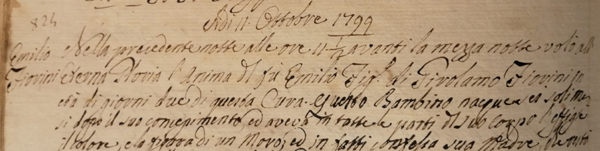 824
Adi 11 Ottobre 1799
Emilio Nella precedente notte alle ore 11 1/2 avanti la mezza notte volò all'
Fiorini Eterna Gloria l'Anima di fu Emilio Fig.º di Girolamo Fiorini in
età di giorni due di questa Cura. Questo Bambino nacque
si dopo il suo concepimento, ed aveva in tutte le parti del suo Corpo l'effigie
il colore, e la figura di un Moro; ed in fatti confessa sua Madre